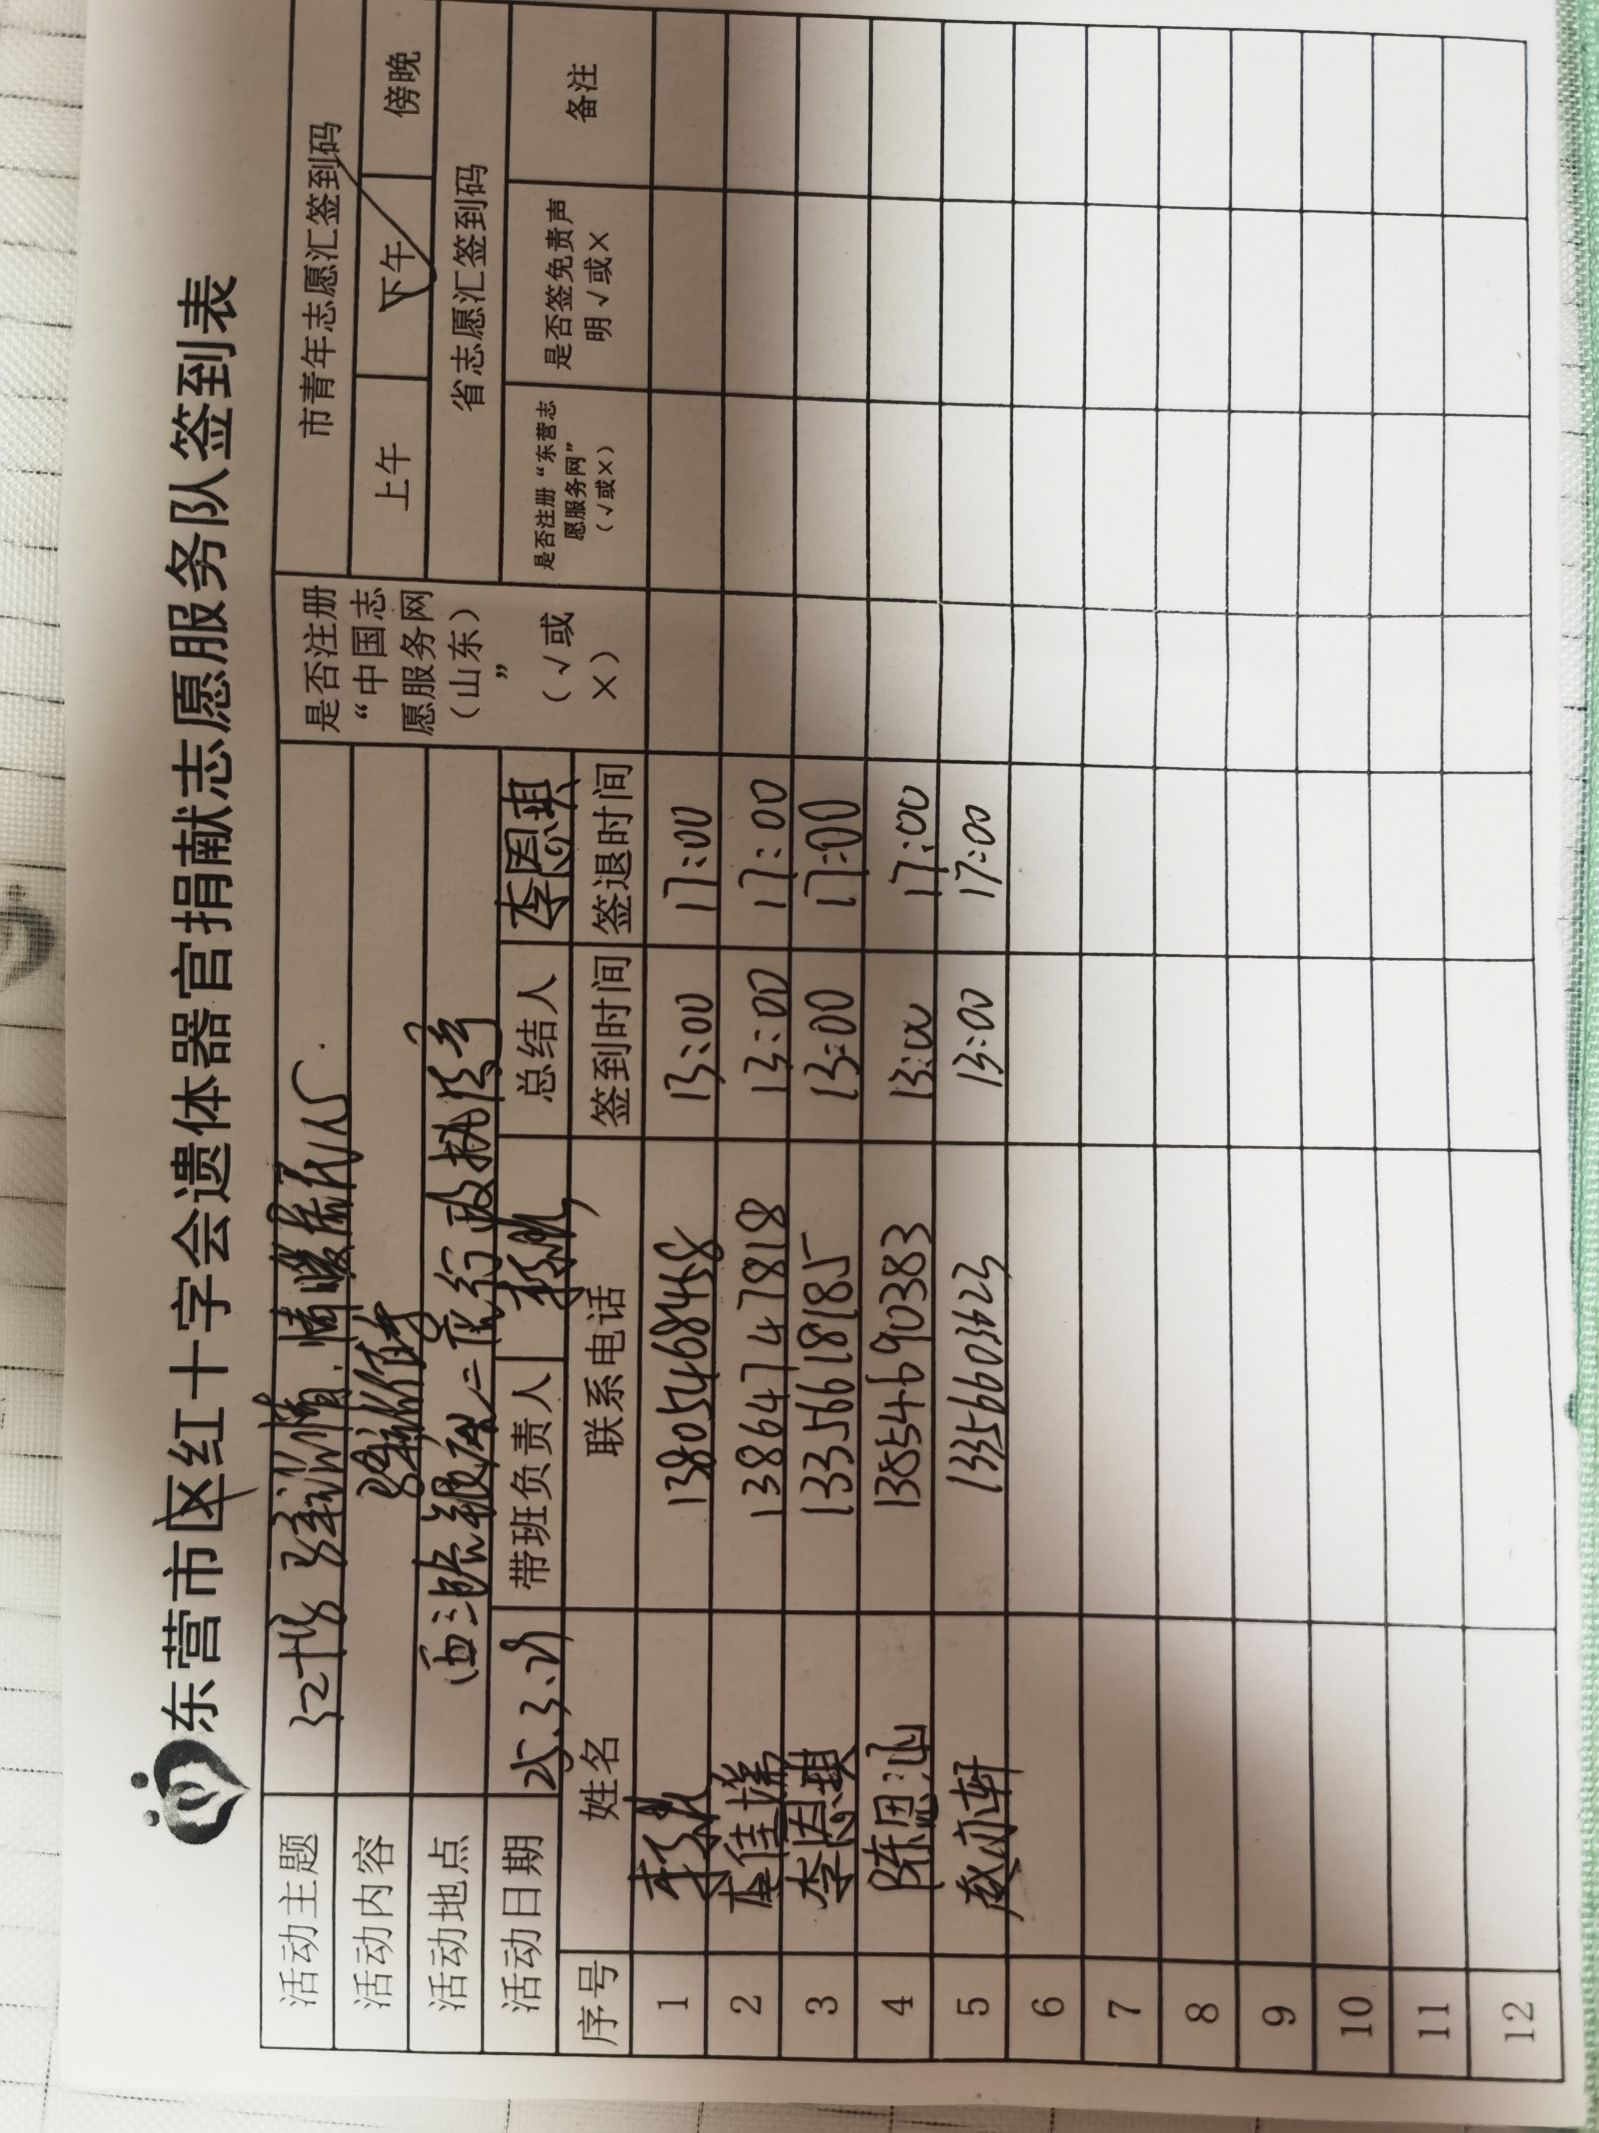 东营市区红十字会遗体器官捐献志愿服务队签到表
活动主题 市青年志愿汇签到码
活动内容 上午 下午 傍晚
活动地点 省志愿汇签到码
是否注册“中国志愿服务网（山东）”（√或×）
活动日期 25.3.29 带班负责人 总结人 李恩琪
序号 姓名 联系电话 签到时间 签退时间 是否注册“东营志愿服务网”（√或×） 是否签免责声明√或× 备注
1 13805468458 13:00 17:00
2 唐佳瑞 13864747818 13:00 17:00
3 李恩琪 13356618185 13:00 17:00
4 陈恩汕 13854690383 13:00 17:00
5 赵亦轩 13:00 17:00
6
7
8
9
10
11
12